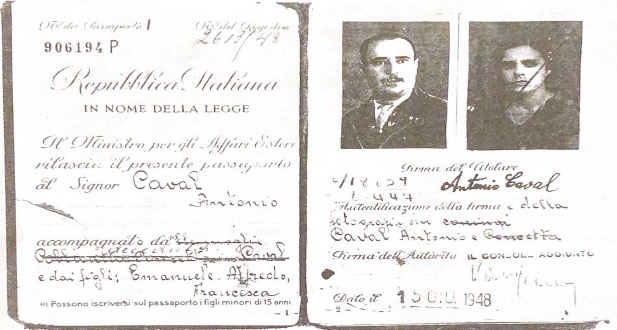 No del Passaporto No del Registro
906194 P 2613/48
Repubblica Italiana
IN NOME DELLA LEGGE
Il Ministro per gli Affari Esteri
rilascia il presente passaporto
al Signor Caval
Antonio
accompagnato da
Caval
e dai figli: Emanuele. Alfredo,
Francesca
(1) Possono iscriversi sul passaporto i figli minori di 15 anni.
- 1 -
Firma del Titolare
Antonio Caval
Autentificazione della firma e della
fotografia dei coniugi
Caval Antonio e Concetta
Firma dell'Autorità IL CONSOLE AGGIUNTO
Dato il 15 GIU. 1948
- 2 -